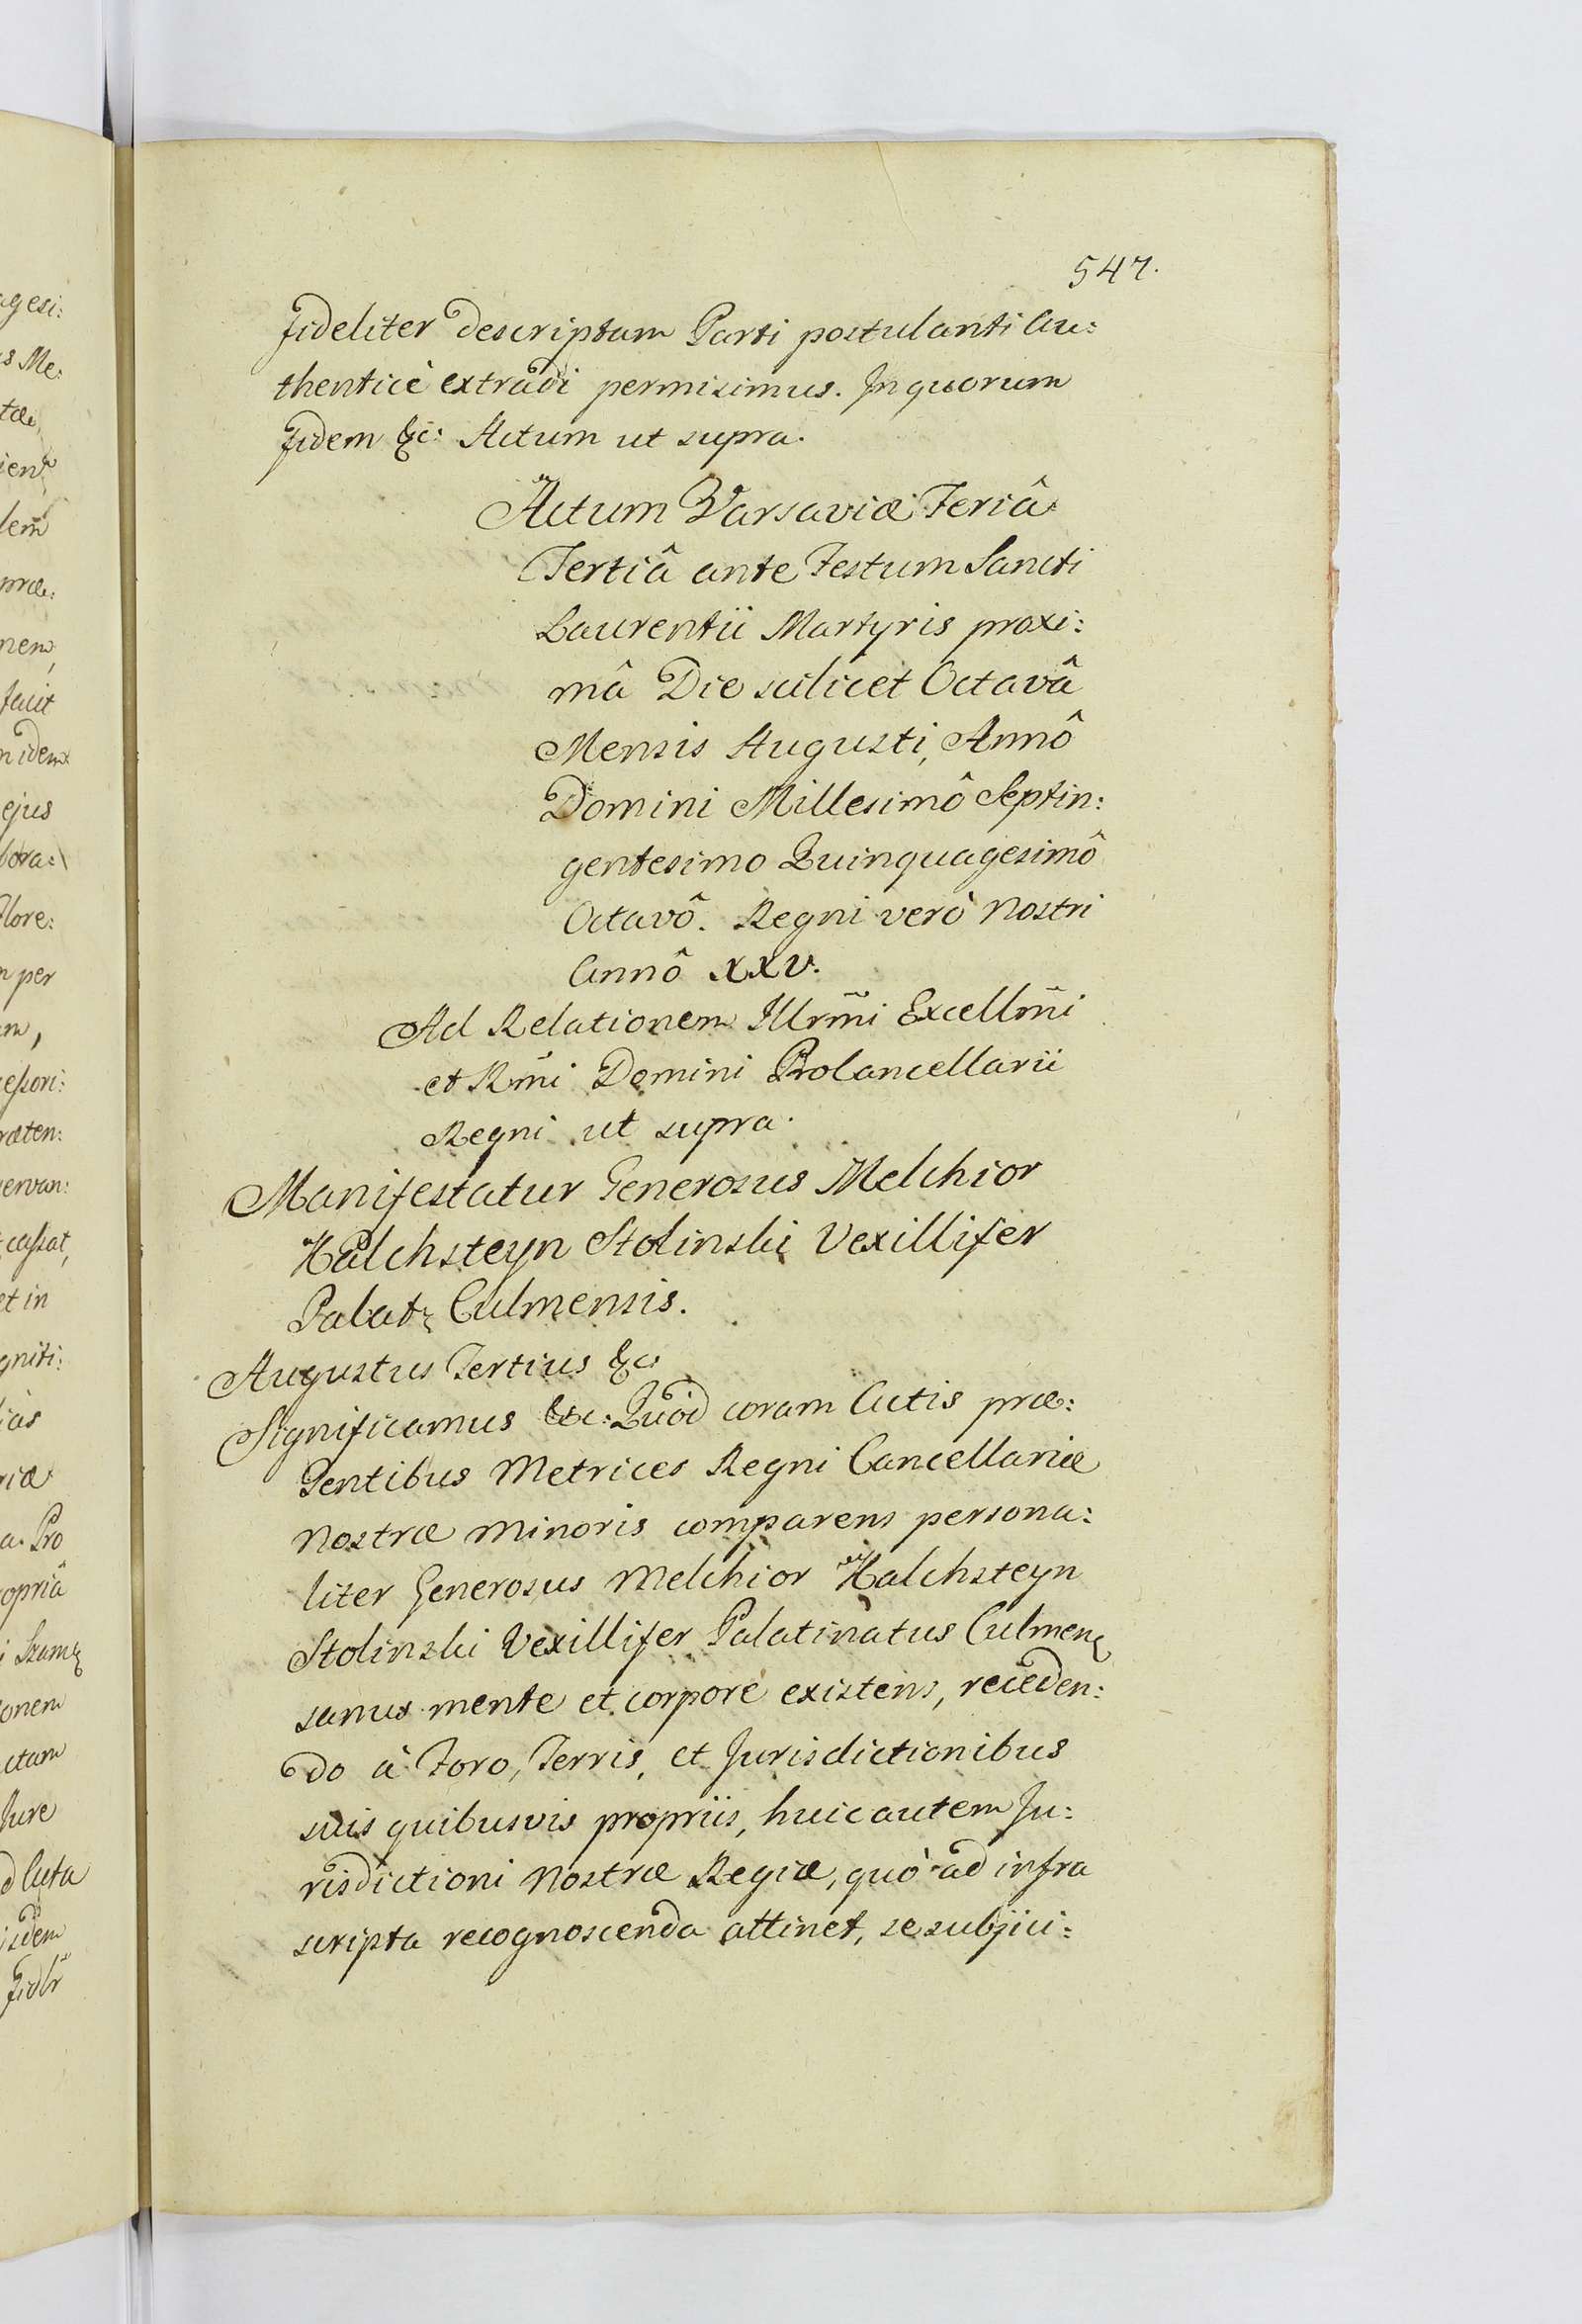 547.
fideliter descriptum Parti postulanti Au:
thenticè extradi permisimus. In quorum
fidem &c: Actum ut supra.
Actum Varsaviæ Feriâ
Tertiâ ante Festum Sancti
Laurentii Martyris proxi:
mâ Die scilicet Octavâ
Mensis Augusti, Annô
Domini Millesimô Septin:
gentesimo Quinquagesimô
Octavô. Regni verò Nostri
Annô XXV.
Ad Relationem Illrm̃i Excellm̃i
et Rm̃i Domini Procancellarii
Regni ut supra.
Manifestatur Generosus Melchior
Kalchsteyn Stolinski Vexillifer
Palat: Culmensis.
Augustus Tertius &c
Significamus &c: Quod coram Actis præ:
sentibus Metrices Regni Cancellariæ
Nostræ Minoris comparens persona:
liter Generosus Melchior Kalchsteyn
Stolinski Vexillifer Palatinatus Culmen:
sanus mente et corpore existens, receden:
do à Foro, Terris, et Jurisdictionibus
suis quibusvis propriis, huic autem Ju:
risdictioni Nostræ Regiæ, quò ad infra
scripta recognoscenda attinet, se subjici: